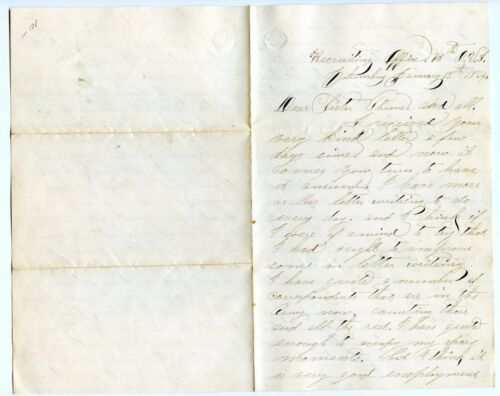 Recruiting Office 15th
January 5th
Dear Sister and all
I received your
very kind letter a few
days since and now it
comes your turn to have
it answered. I have more
or less letter writing to do
every day. and I think if
I were of a mind to try that
I had ought to improve
some in letter writing
I have quite a number of
correspondents that are in the
Army now, counting those
and all the rest. I have quite
enough to occupy my spare
moments. but I think it
is very good employment